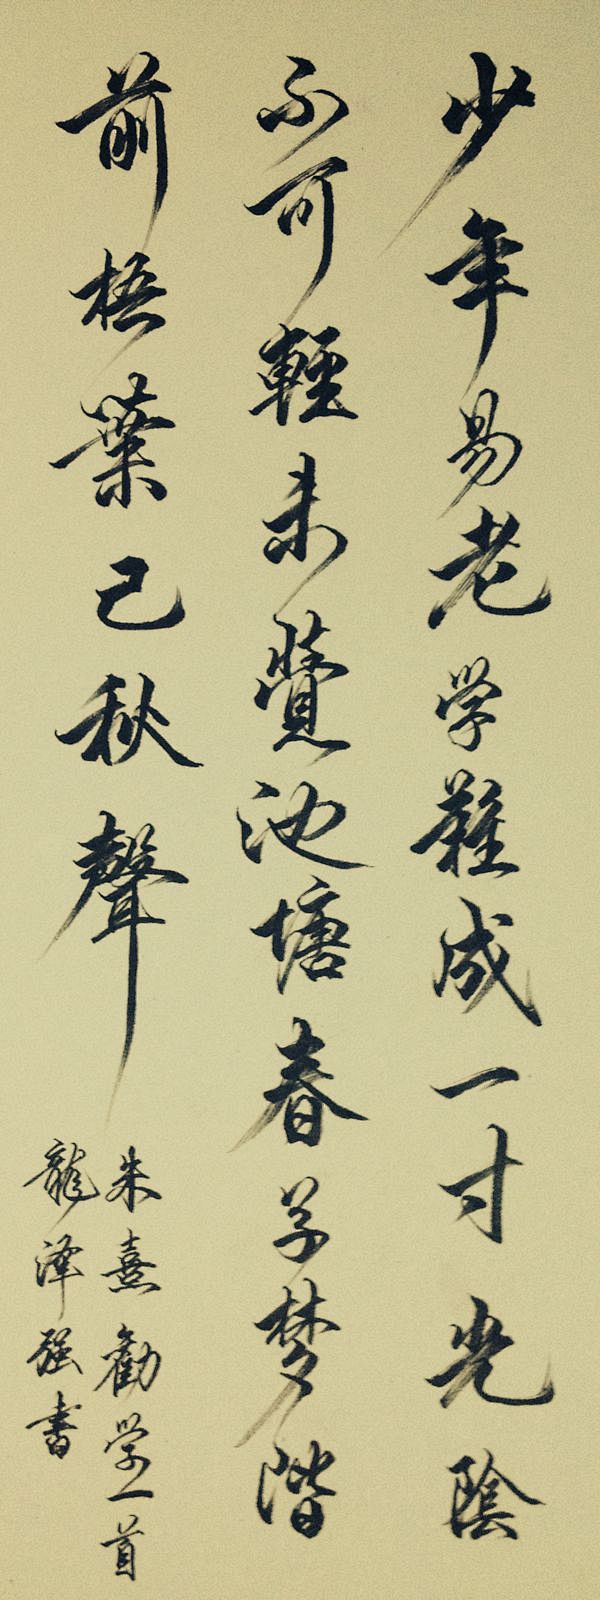 少年易老学難成一寸光陰
不可輕未覺池塘春草梦階
前梧葉已秋聲
朱熹勸学一首
龍泽强书